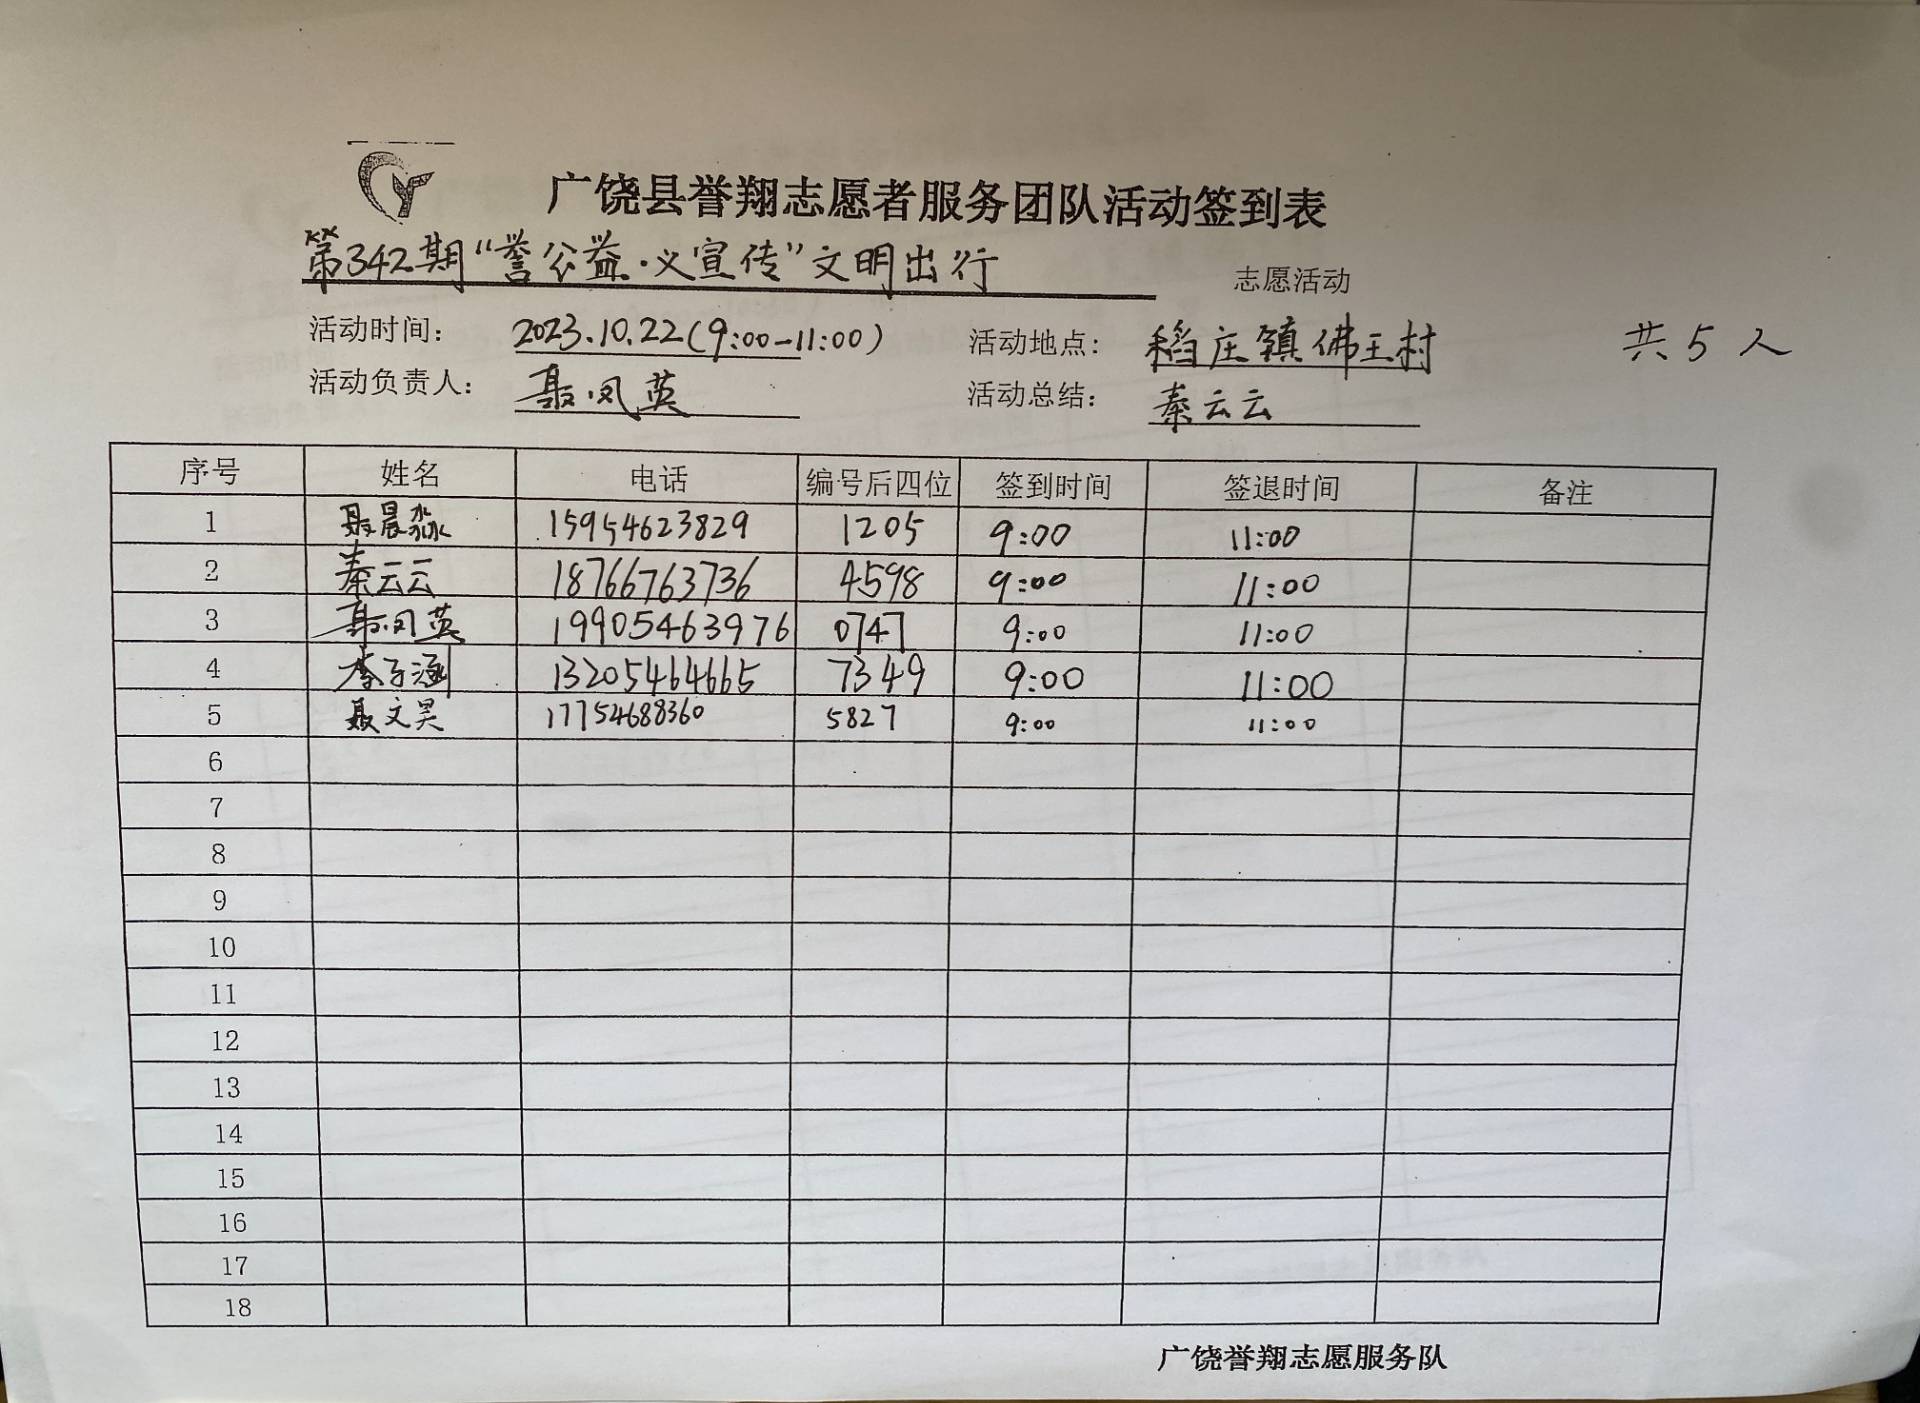 广饶县誉翔志愿者服务团队活动签到表
第342期“誉公益·义宣传”文明出行 志愿活动
活动时间: 2023.10.22(9:00-11:00) 活动地点: 稻庄镇佛王村 共5人
活动负责人: 聂凤英 活动总结: 秦云云
序号 姓名 电话 编号后四位 签到时间 签退时间 备注
1 聂晨淼 15954623829 1205 9:00 11:00
2 秦云云 18766763736 4598 9:00 11:00
3 聂凤英 19905463976 0747 9:00 11:00
4 李子涵 13205464665 7349 9:00 11:00
5 聂文昊 17754688360 5827 9:00 11:00
6
7
8
9
10
11
12
13
14
15
16
17
18
广饶誉翔志愿服务队